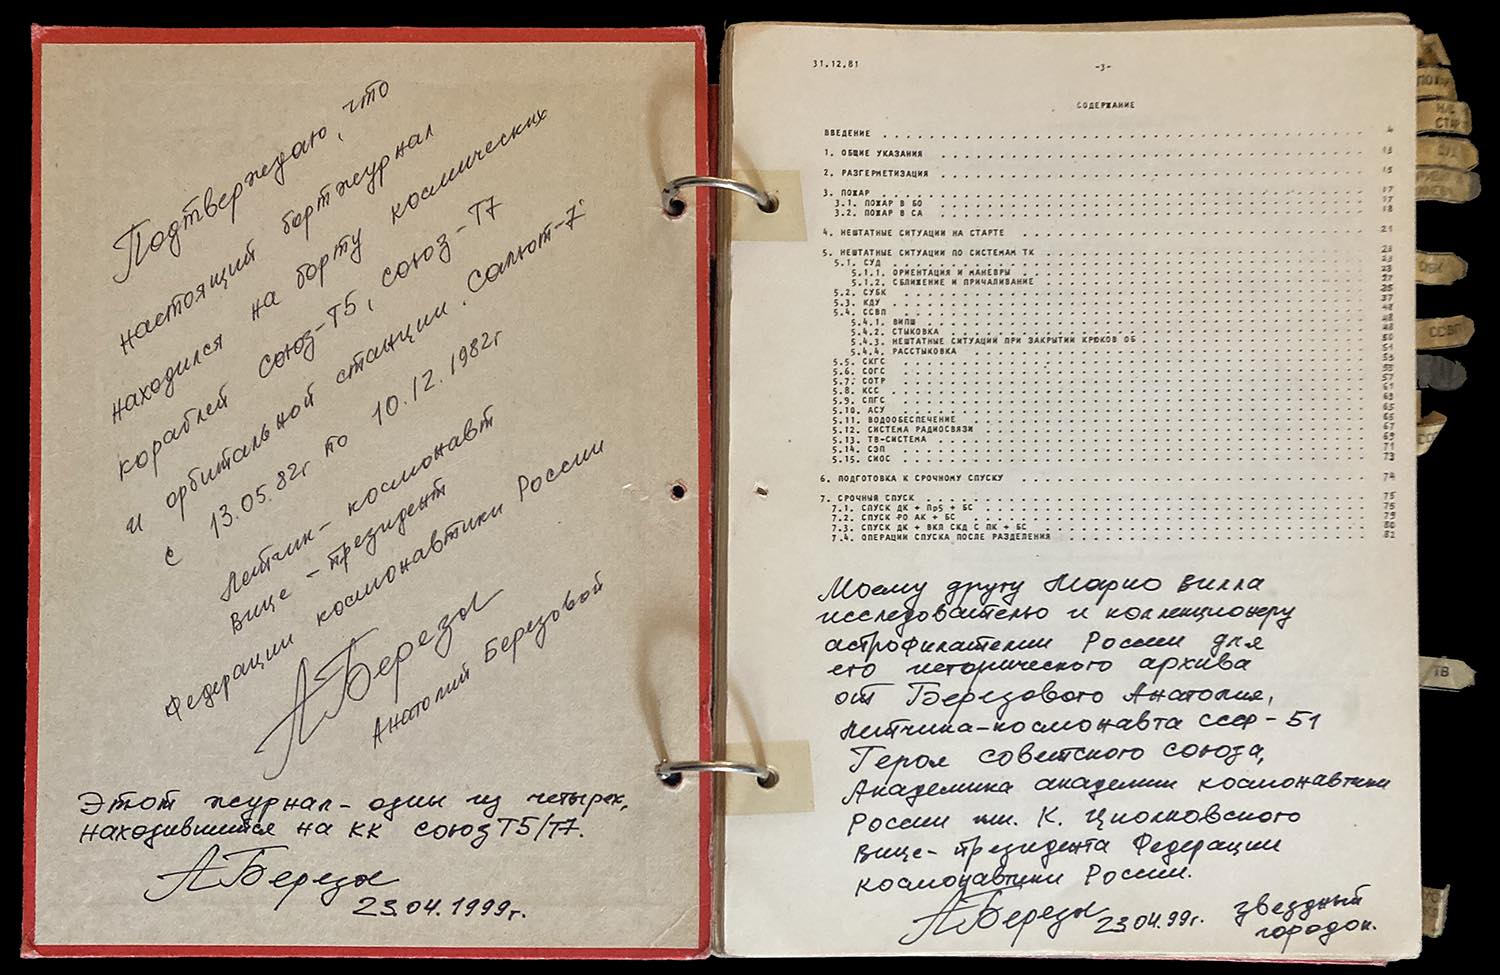 Подтверждаю, что
настоящий бортжурнал
находился на борту космических
кораблей союз-Т5, союз-Т7
и орбитальной станции "Салют-7"
с 13.05.82г по 10.12.1982г
Летчик-космонавт
Вице-президент
Федерации космонавтики России
АБерезы
Анатолий Березовой
Этот журнал-один из четырех,
находившийся на КК союзТ5/Т7.
АБерезы
23.04.1999г.
31.12.81
-3-
СОДЕРЖАНИЕ
ВВЕДЕНИЕ 4
1. ОБЩИЕ УКАЗАНИЯ 13
2. РАЗГЕРМЕТИЗАЦИЯ 15
3. ПОЖАР 17
3.1. ПОЖАР В БО 17
3.2. ПОЖАР В СА 18
4. НЕШТАТНЫЕ СИТУАЦИИ НА СТАРТЕ 21
5. НЕШТАТНЫЕ СИТУАЦИИ ПО СИСТЕМАМ ТК 23
5.1. СУД 23
5.1.1. ОРИЕНТАЦИЯ И МАНЕВРЫ 23
5.1.2. СБЛИЖЕНИЕ И ПРИЧАЛИВАНИЕ 27
5.2. СУБК 35
5.3. КДУ 37
5.4. ССВП 48
5.4.1. ВИПШ 48
5.4.2. СТЫКОВКА 48
5.4.3. НЕШТАТНЫЕ СИТУАЦИИ ПРИ ЗАКРЫТИИ КРЮКОВ ОБ 50
5.4.4. РАССТЫКОВКА 51
5.5. СКГС 53
5.6. СОГС 55
5.7. СОТР 57
5.8. КСС 61
5.9. СПГС 63
5.10. АСУ 65
5.11. ВОДООБЕСПЕЧЕНИЕ 65
5.12. СИСТЕМА РАДИОСВЯЗИ 67
5.13. ТВ-СИСТЕМА 69
5.14. СЭП 71
5.15. СИОС 73
6. ПОДГОТОВКА К СРОЧНОМУ СПУСКУ 74
7. СРОЧНЫЙ СПУСК 75
7.1. СПУСК ДК + ПрS + БС 75
7.2. СПУСК РО АК + БС 79
7.3. СПУСК ДК + ВКЛ СКД С ПК + БС 80
7.4. ОПЕРАЦИИ СПУСКА ПОСЛЕ РАЗДЕЛЕНИЯ 82
Моему другу Марио Вилла
исследователю и коллекционеру
астрофилателии России для
его исторического архива
от Березового Анатолия,
летчика-космонавта ссср-51
Героя советского союза,
Академика академии космонавтики
России им. К. Циолковского
Вице-президента Федерации
космонавтики России.
АБерезы 23.04.99г. звездный
городок.
НА
СТАР
ССВП
ТВ